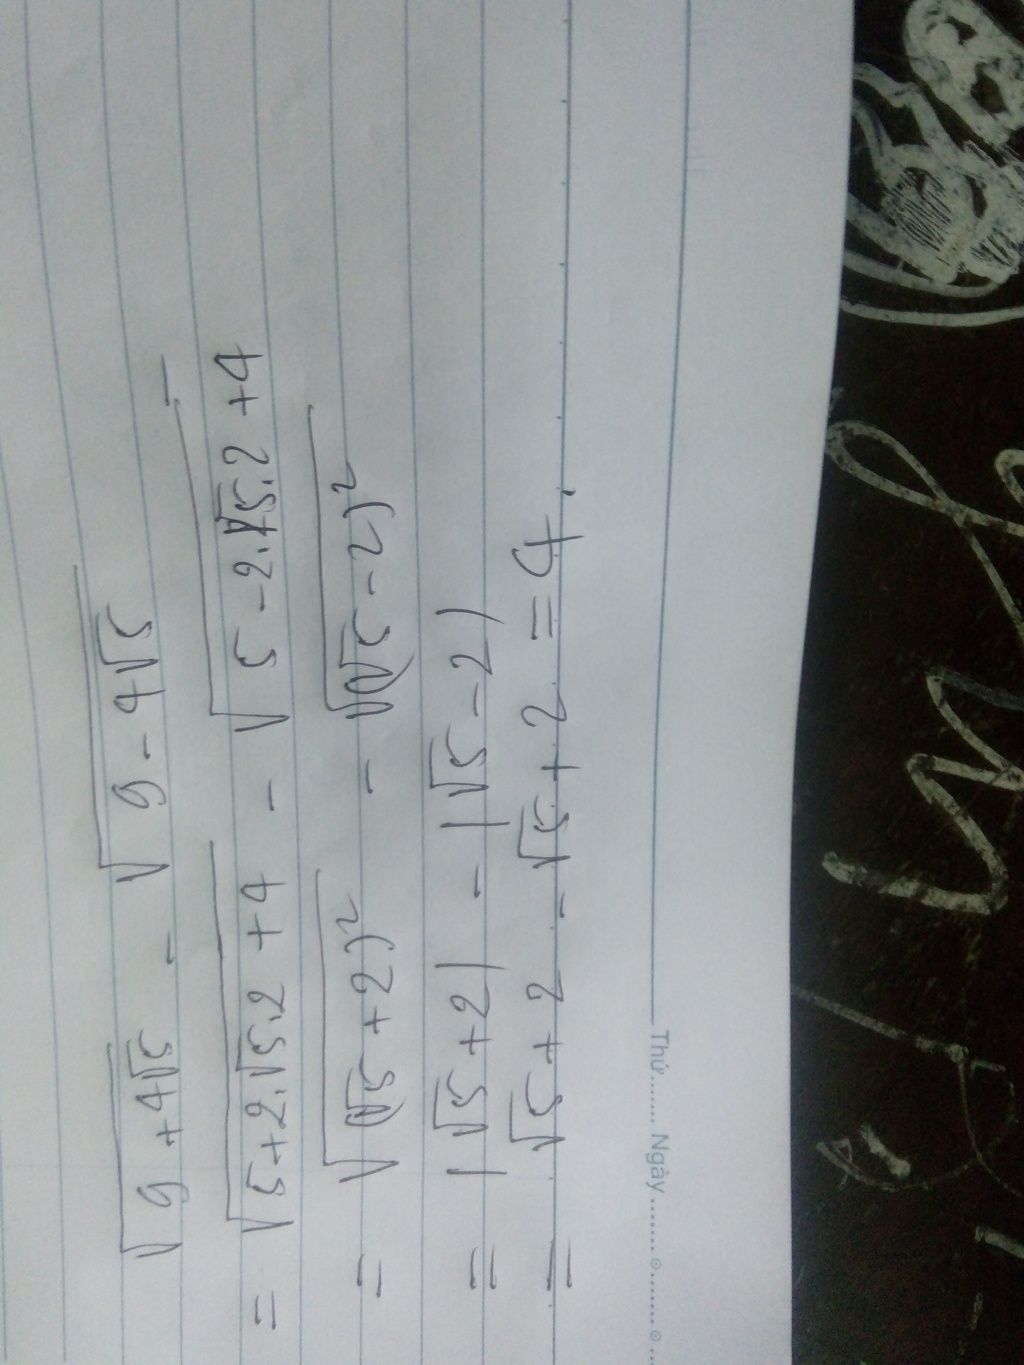 √(9 + 4√5) - √(9 - 4√5)
= √(5 + 2.√5.2 + 4) - √(5 - 2.√5.2 + 4)
= √((√5 + 2)²) - √((√5 - 2)²)
= |√5 + 2| - |√5 - 2|
= √5 + 2 - √5 + 2 = 4.
Thứ........ Ngày ........